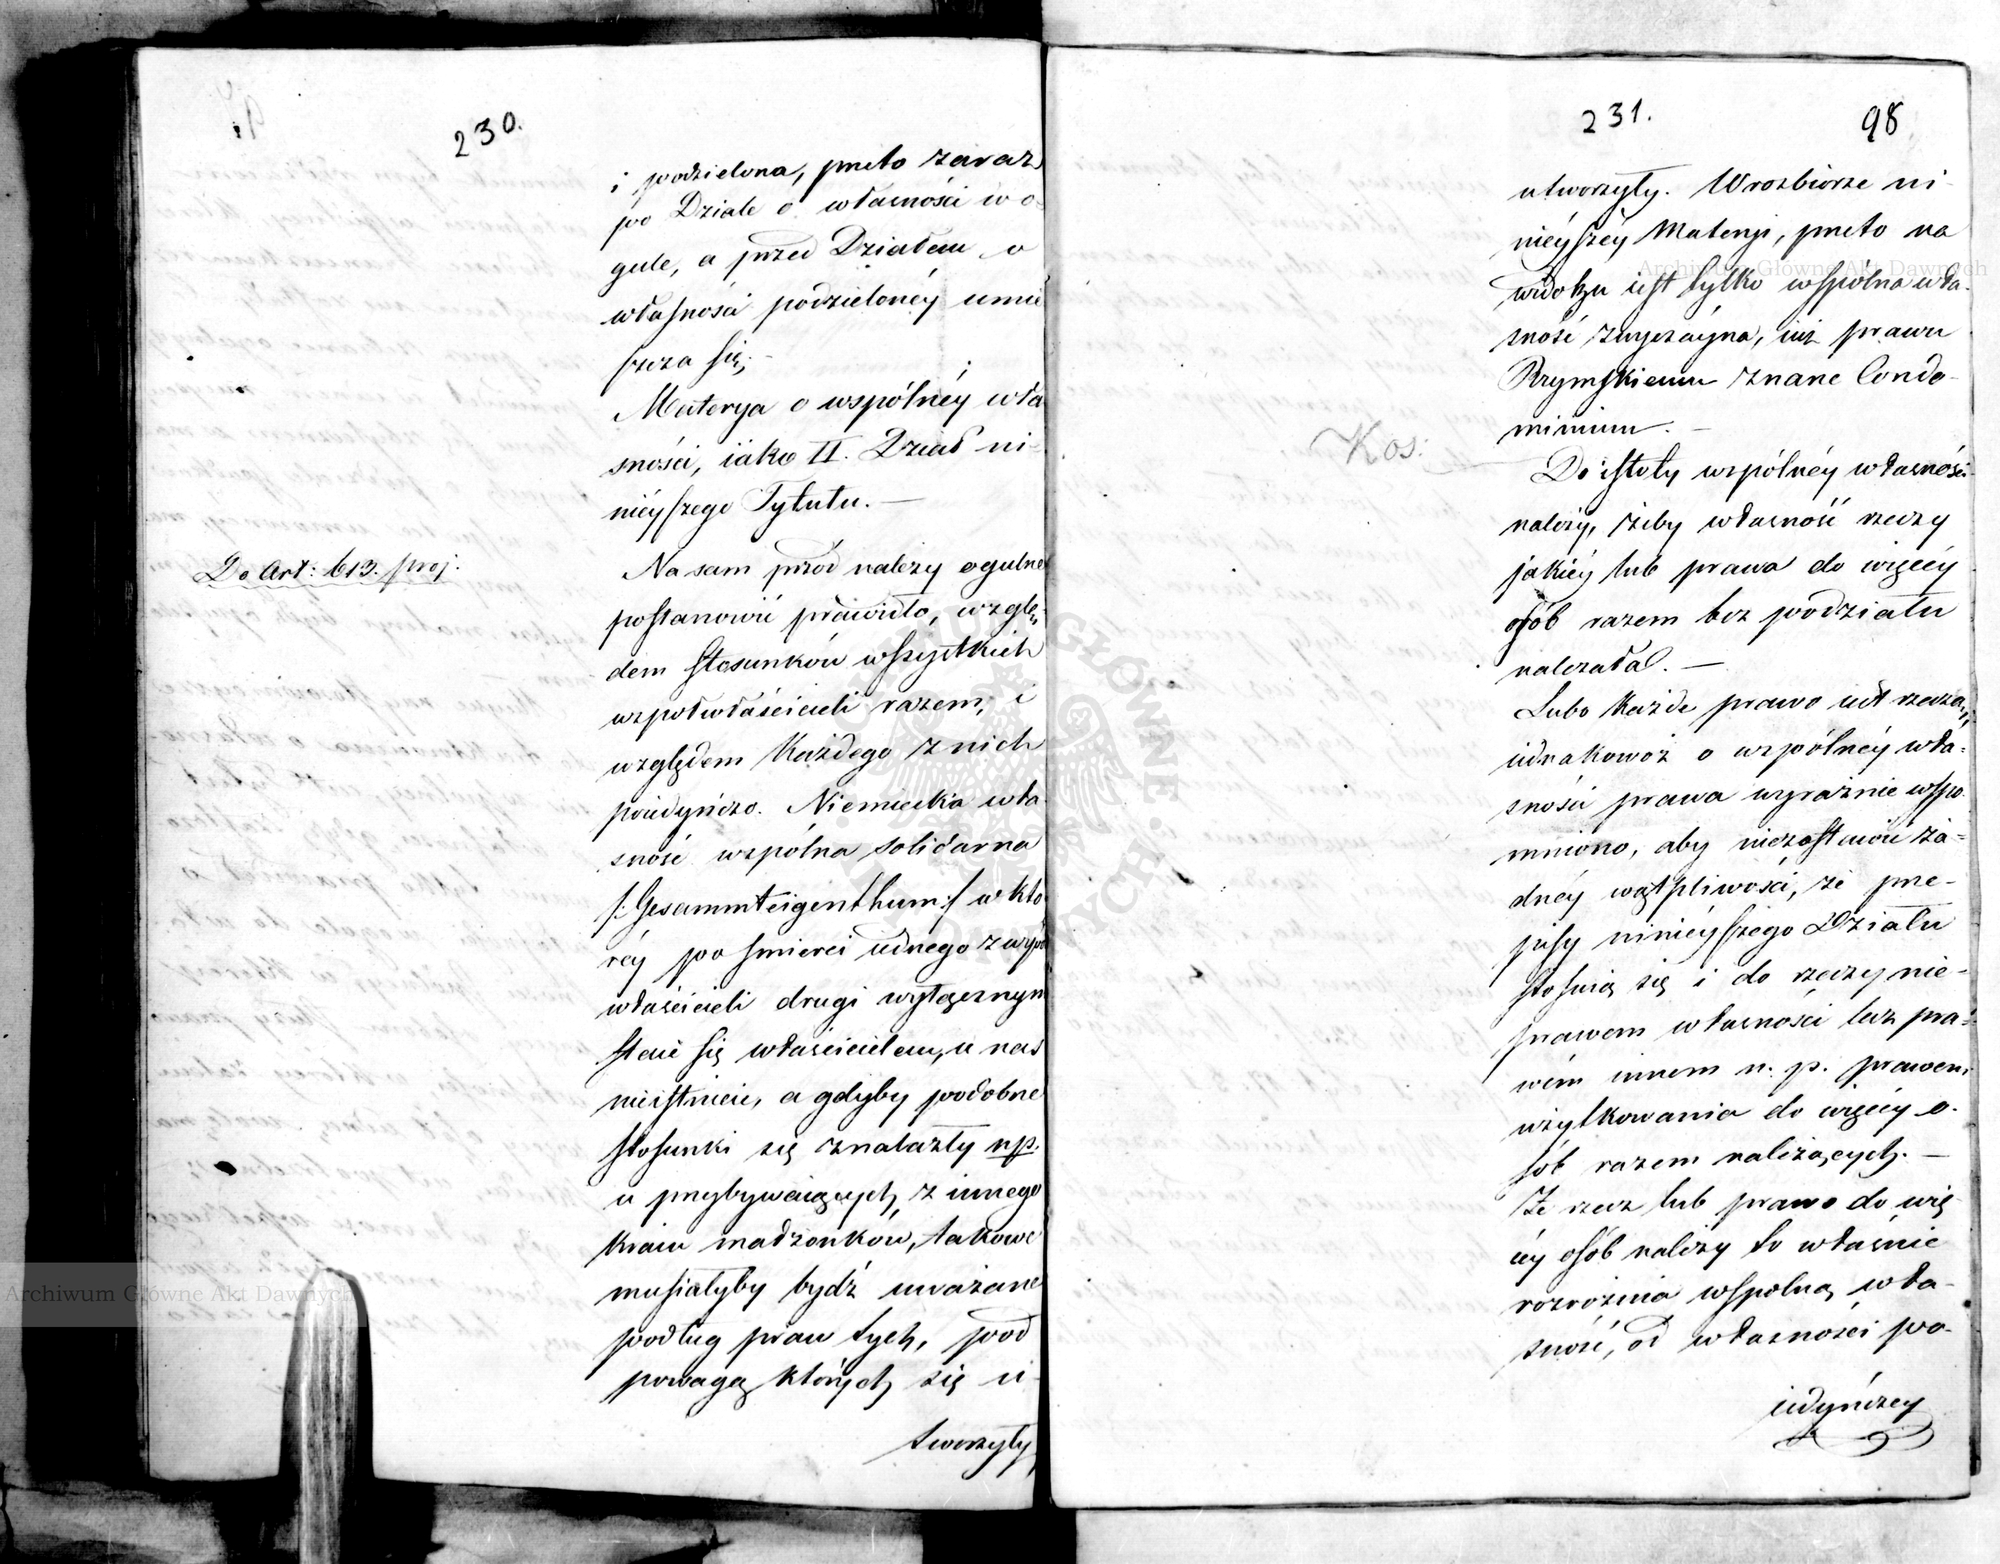 230.
i podzielona, przeto zaraz
po Dziale o własności w o-
gule, a przed Działem o
własności podzielonéy umie
szcza się.
Materya o wspólnéy wła
sności, iako II. Dział ni-
niéyszego Tytułu. —
Do Art: 613. proj.
Na sam przód należy ogulne
postanowić prawidło, wzglę-
dem stosunków wszystkich
wspołwłaścicieli razem, i
względem każdego z nich
poiedyńczo. Niemiecka wła-
sność wspólna solidarna
/: Gesammteigenthum :/ w któ
réy po smierci iednego z współ
właścicieli drugi wyłącznym
staie się właścicielem, u nas
nieistnieie, a gdyby podobne
stosunki się znalazły np.
u przybywaiących z innego
kraiu małżonków, takowe
musiałyby bydź uważane
podług praw tych, pod
powagą których się u-
tworzyły
231.
98
utworzyły. W rozbiorze ni-
niéyszéy Materyi, przeto na
widoku iest tylko wspólna wła-
sność zwyczayna, iuż prawu
Rzymskiemu znane Condo-
minium. —
Kos:
Do istoty wspólnéy własności
należy, żeby własność rzeczy
jakiéy lub prawa do więcéy
osób razem bez podziału
należała. —
Lubo każde prawo iest rzeczą,
iednakowoż o wspólnéy wła-
sności prawa wyraźnie wspo-
mniono, aby niezostawić ża-
dnéy wątpliwości, że prze-
pisy niniéyszego Działu
stosuią się i do rzeczy nie-
prawem własności lecz pra-
wém innem n. p. prawem
użytkowania do więcéy o-
sób razem należących. —
Że rzecz lub prawo do wię-
céy osób należy to właśnie
rozróżnia wspolną wła-
sność, od własności po-
iedyńczey
Archiwum Główne Akt Dawnych
Archiwum Główne Akt Dawnych